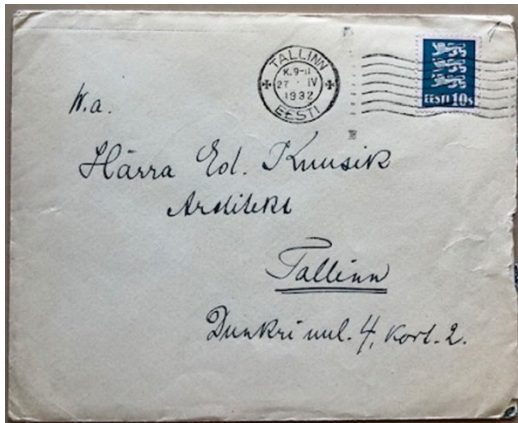 TALLINN
K. 9-11
27 IV
1932
EESTI
EESTI 10 s
W. a.
Härra Ed. Kuusik
Arhitekt
Tallinn
Dunkri uul. 4, kort. 2.